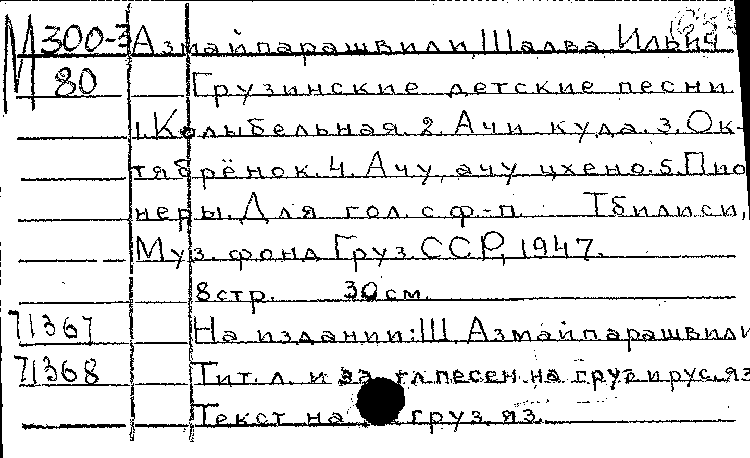 М 300-3 Азмайпарашвили, Шалва Ильич
80 Грузинские детские песни
1. Колыбельная. 2. Ачи куда. 3. Ок-
тябрёнок. 4. Ачу, ачу цхено. 5. Пио
неры. Для гол. с ф-п. Тбилиси,
Муз. фонд Груз. ССР, 1947.
8 стр. 30 см.
71367 На издании: Ш. Азмайпарашвили
71368 Тит. л. и загл. песен на груз. и рус. яз
Текст на груз. яз.